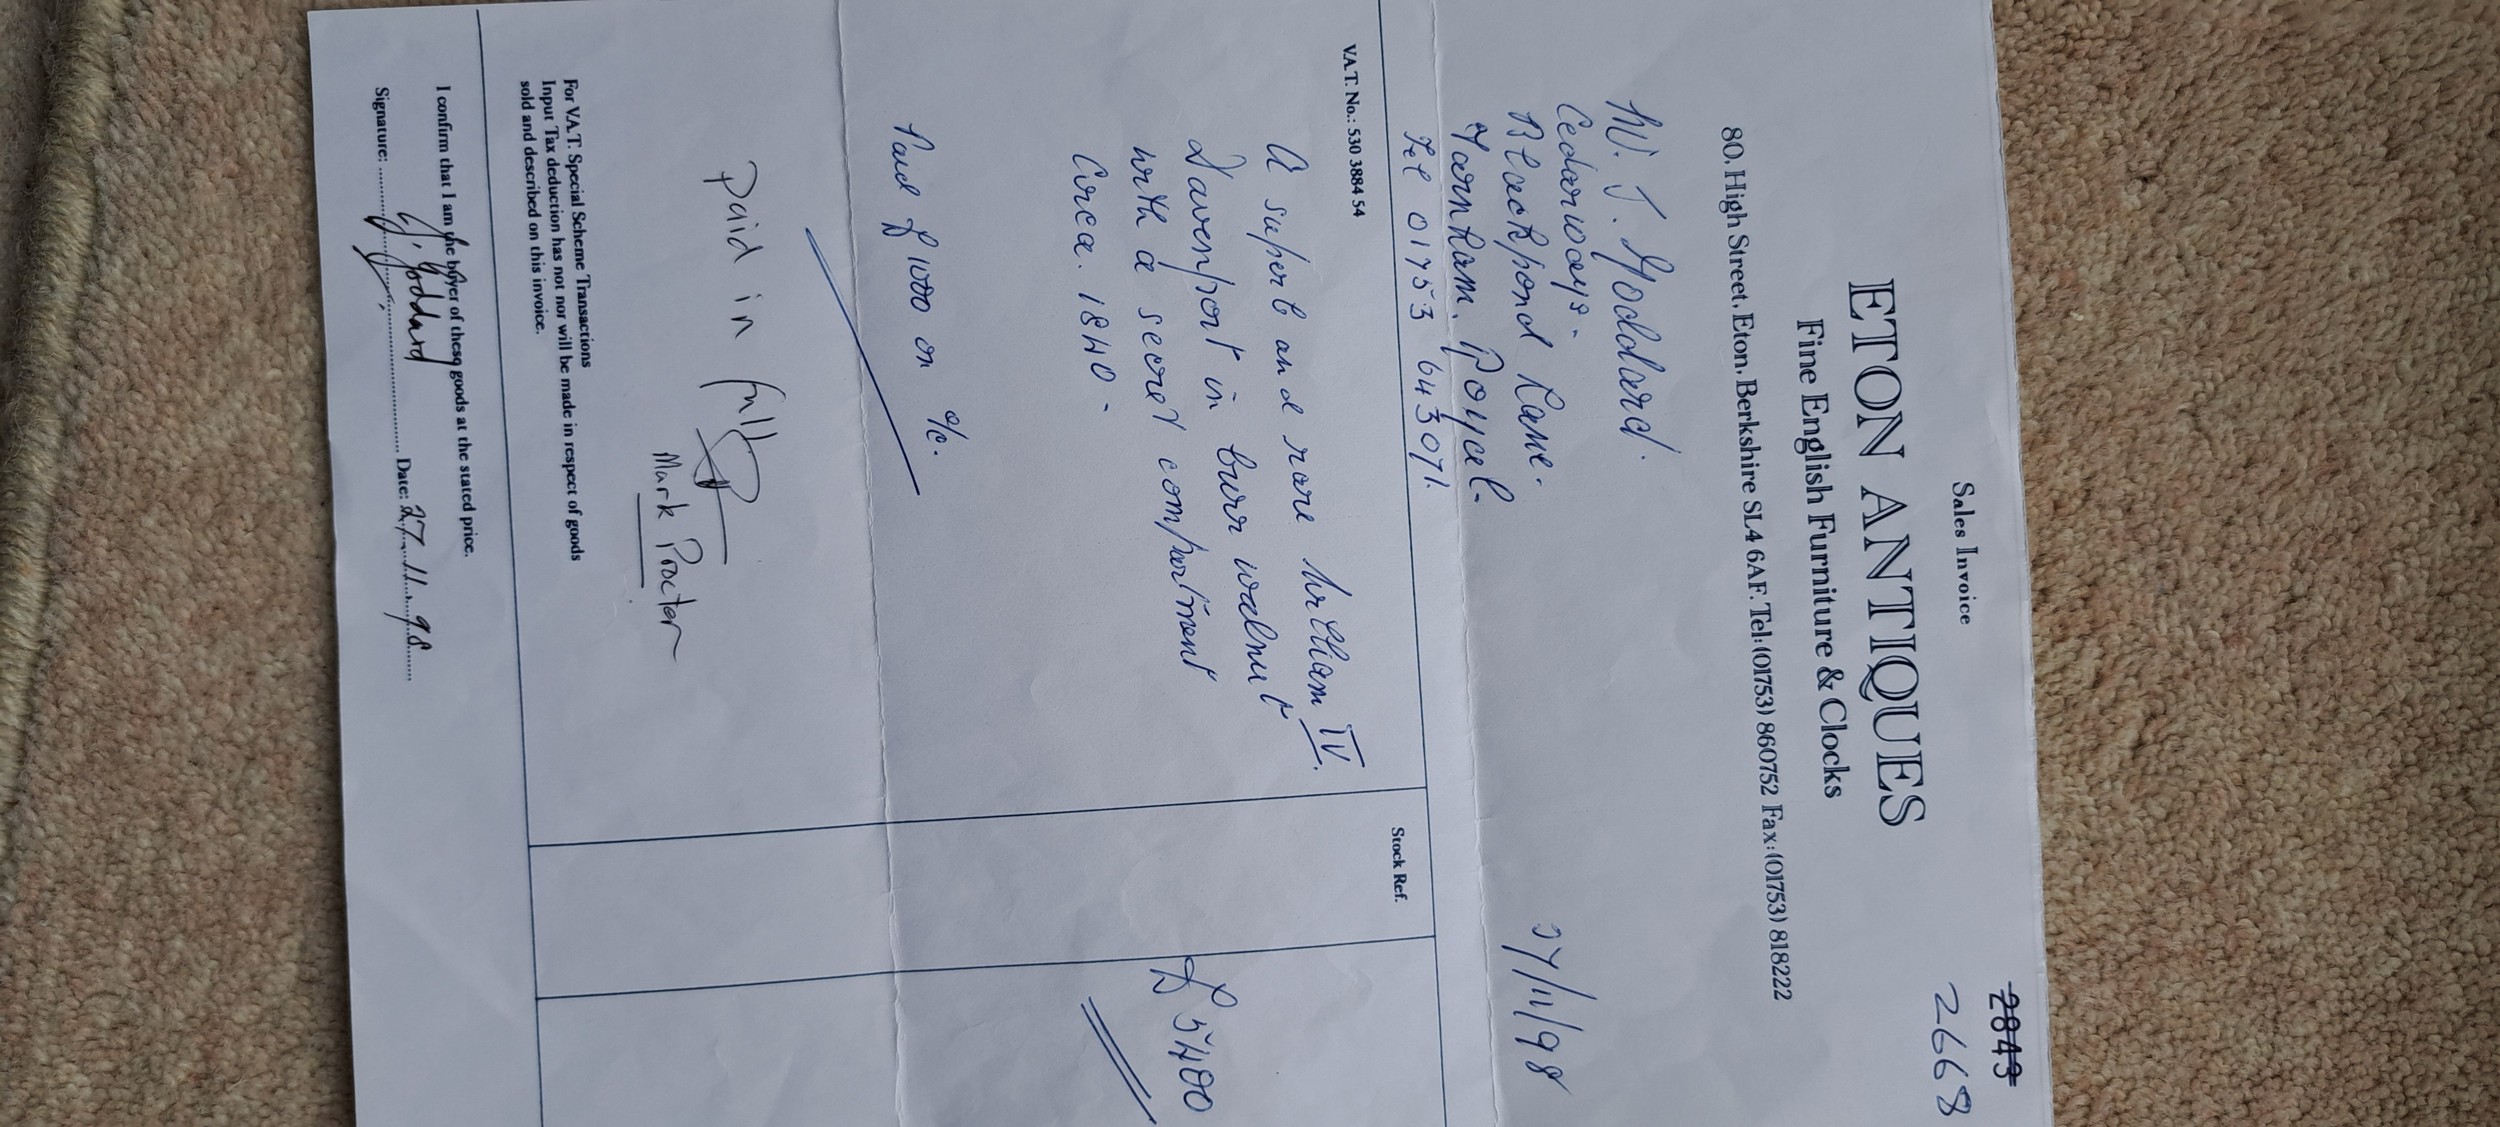 Sales Invoice
2843
2668
ETON ANTIQUES
Fine English Furniture & Clocks
80, High Street, Eton, Berkshire SL4 6AF. Tel: (01753) 860752 Fax: (01753) 818222
J. Goddard.
Cedarways.
Blackpond Lane.
Farnham. Royal.
27/11/98
Tel 01753 643071.
Stock Ref.
V.A.T. No.: 530 3884 54
A superb and rare William IV.
Davenport in burr walnut
with a secret compartment
£5400
Circa. 1840.
Paid £1000 on a/c.
Paid in full
Mark Procter
For V.A.T. Special Scheme Transactions
Input Tax deduction has not nor will be made in respect of goods
sold and described on this invoice.
I confirm that I am the buyer of these goods at the stated price.
Signature: J. Goddard Date: 27.11.98